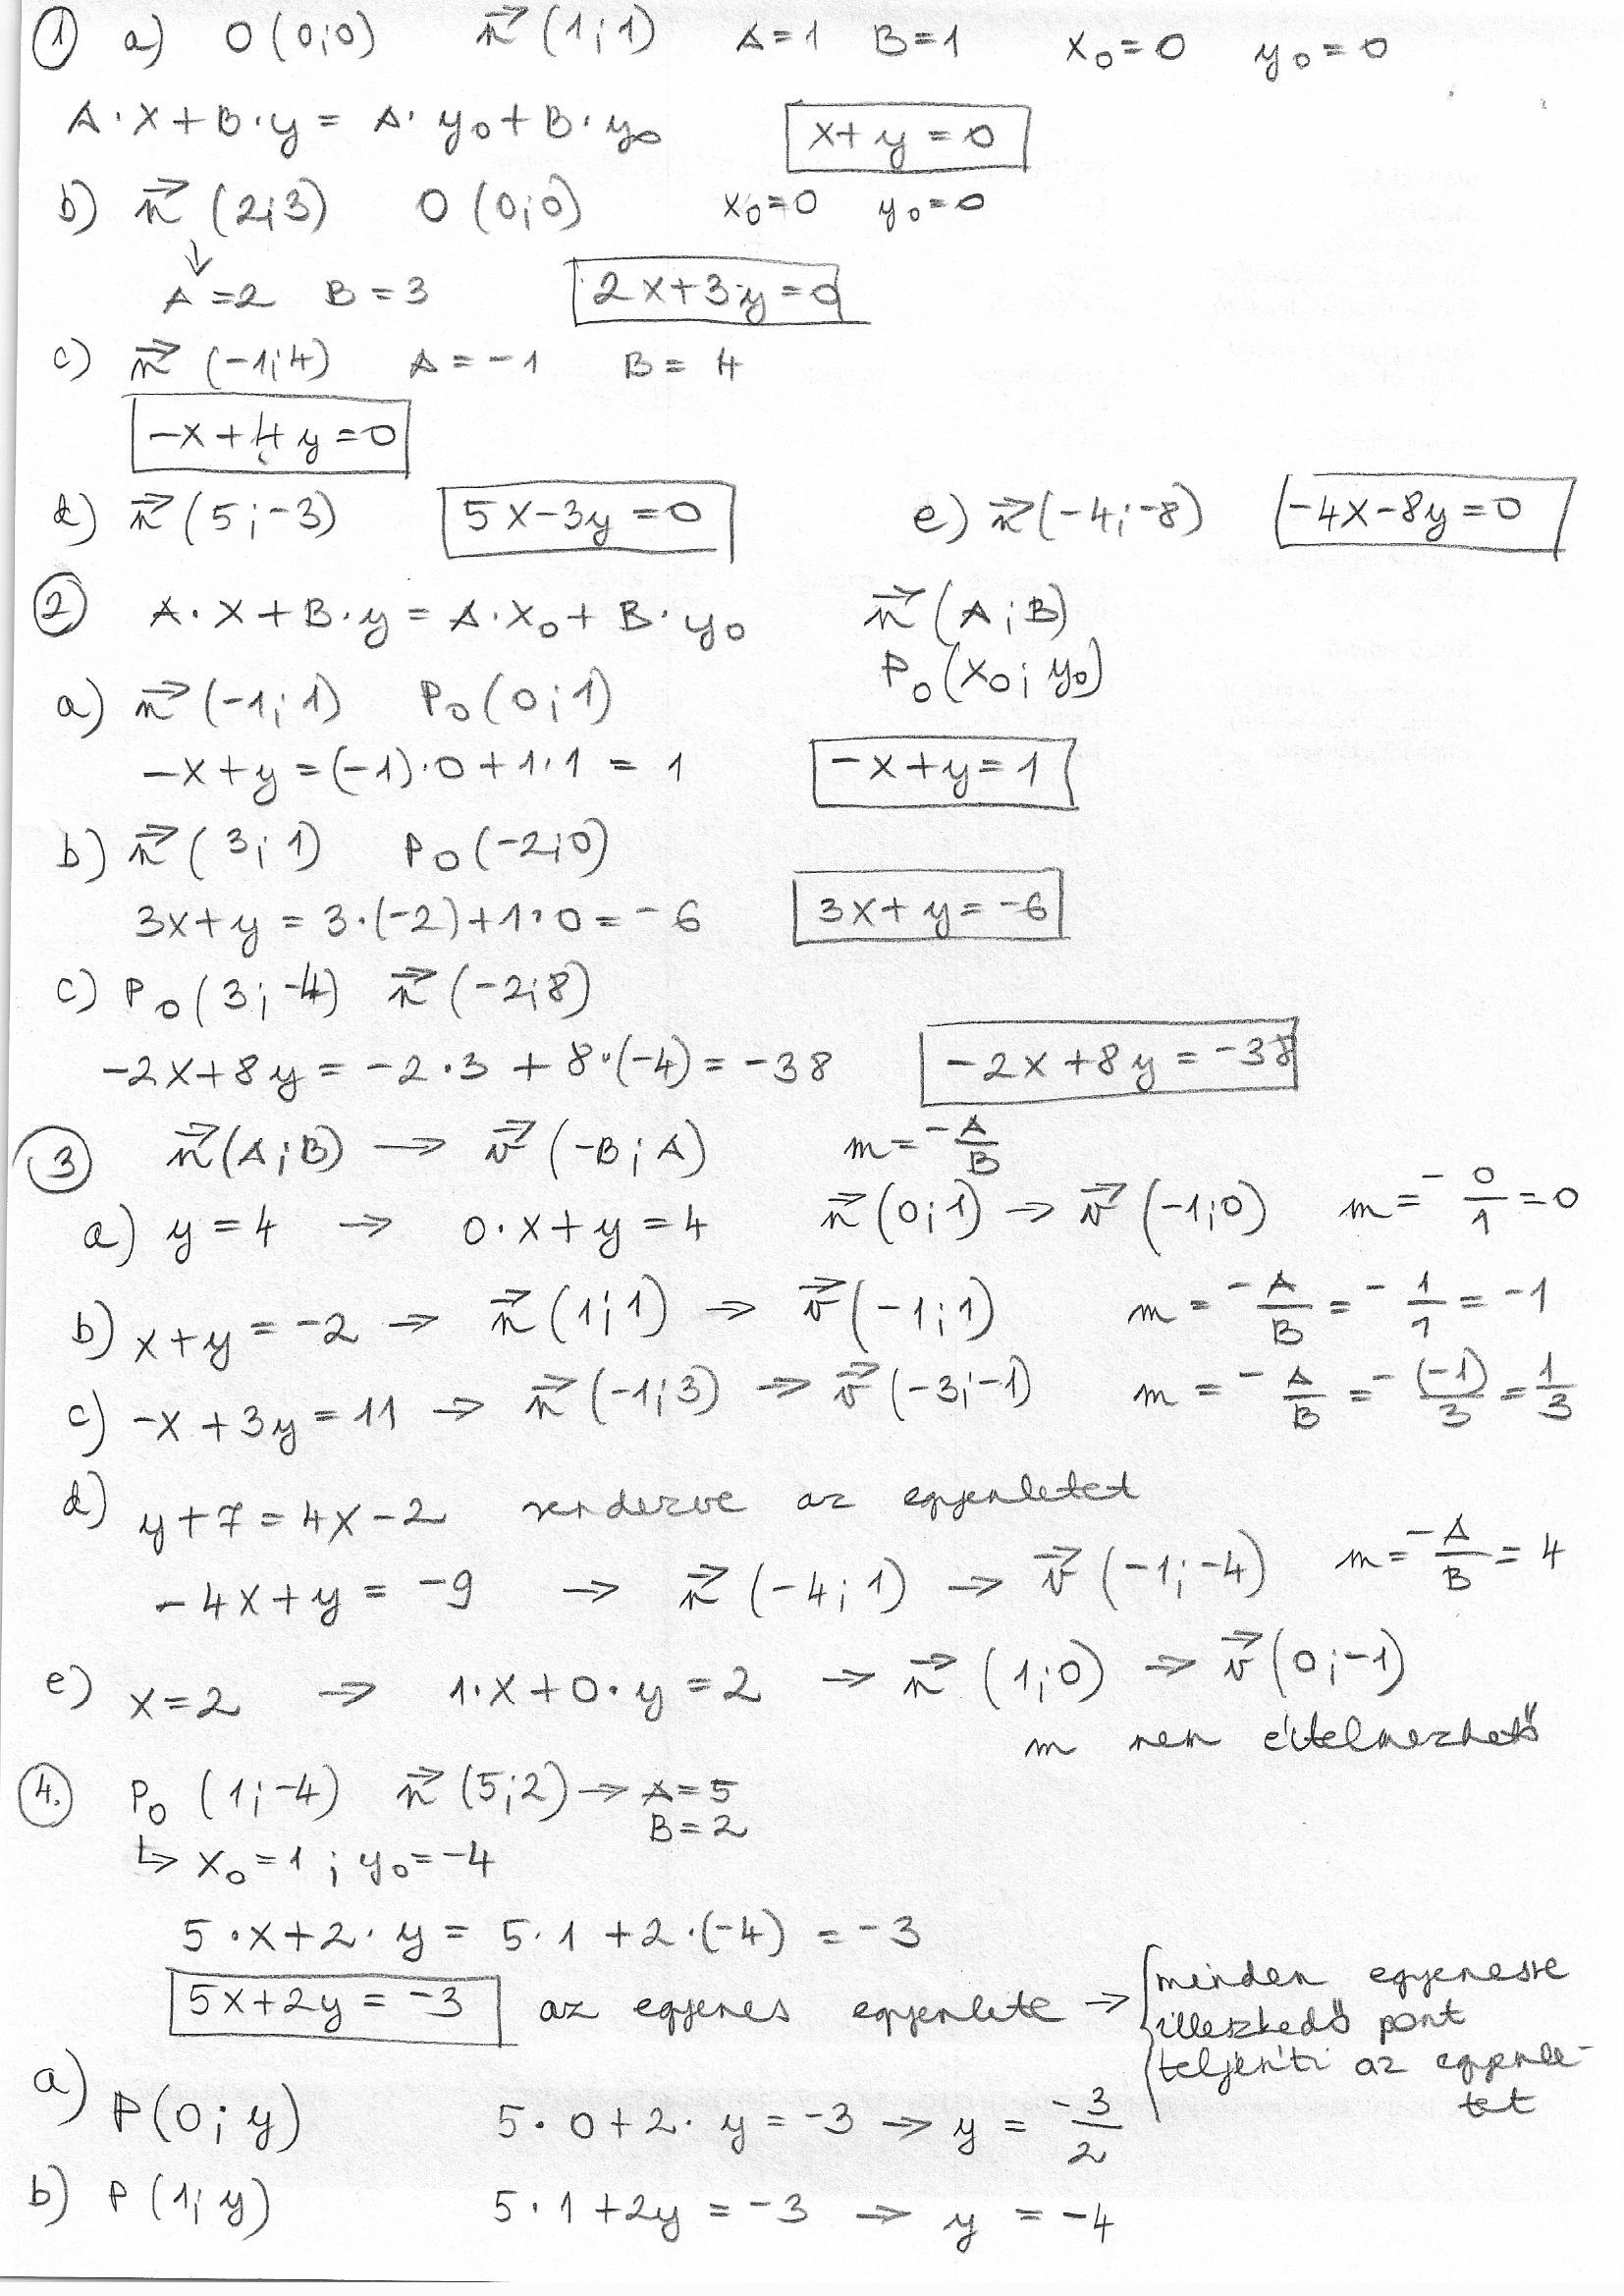 ① a) O(0;0) n⃗(1;1) A=1 B=1 x₀=0 y₀=0
A·x+B·y=A·y₀+B·y₀ x+y=0
b) n⃗(2;3) O(0;0) x₀=0 y₀=0
↓
A=2 B=3 2x+3y=0
c) n⃗(-1;4) A=-1 B=4
-x+4y=0
d) n⃗(5;-3) 5x-3y=0 e) n⃗(-4;-8) -4x-8y=0
② A·x+B·y=A·x₀+B·y₀ n⃗(A;B)
P₀(x₀;y₀)
a) n⃗(-1;1) P₀(0;1)
-x+y=(-1)·0+1·1=1 -x+y=1
b) n⃗(3;1) P₀(-2;0)
3x+y=3·(-2)+1·0=-6 3x+y=-6
c) P₀(3;-4) n⃗(-2;8)
-2x+8y=-2·3+8·(-4)=-38 -2x+8y=-38
③ n⃗(A;B) → v⃗(-B;A) m=-A/B
a) y=4 → 0·x+y=4 n⃗(0;1) → v⃗(-1;0) m=-0/1=0
b) x+y=-2 → n⃗(1;1) → v⃗(-1;1) m=-A/B=-1/1=-1
c) -x+3y=11 → n⃗(-1;3) → v⃗(-3;-1) m=-A/B=-(-1)/3=1/3
d) y+7=4x-2 rendezve az egyenletet
-4x+y=-9 → n⃗(-4;1) → v⃗(-1;-4) m=-A/B=4
e) x=2 → 1·x+0·y=2 → n⃗(1;0) → v⃗(0;-1)
m nem értelmezhető
④. P₀(1;-4) n⃗(5;2) → A=5
B=2
↳ x₀=1; y₀=-4
5·x+2·y=5·1+2·(-4)=-3
5x+2y=-3 az egyenes egyenlete → { minden egyenesre
illeszkedő pont
teljesíti az egyenle-
tet
a) P(0;y) 5·0+2·y=-3 → y=-3/2
b) P(1;y) 5·1+2y=-3 → y=-4